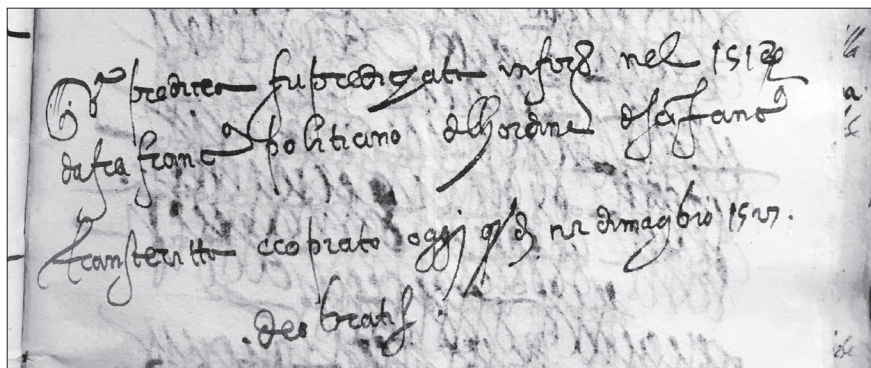 Q.a predica fu predicata in for.za nel 1513
da fra franc.o politiano dell'ordine di sa franc.o
transcritto e copiato oggi q.o dì VII di maggio 1527.
deo gratis.